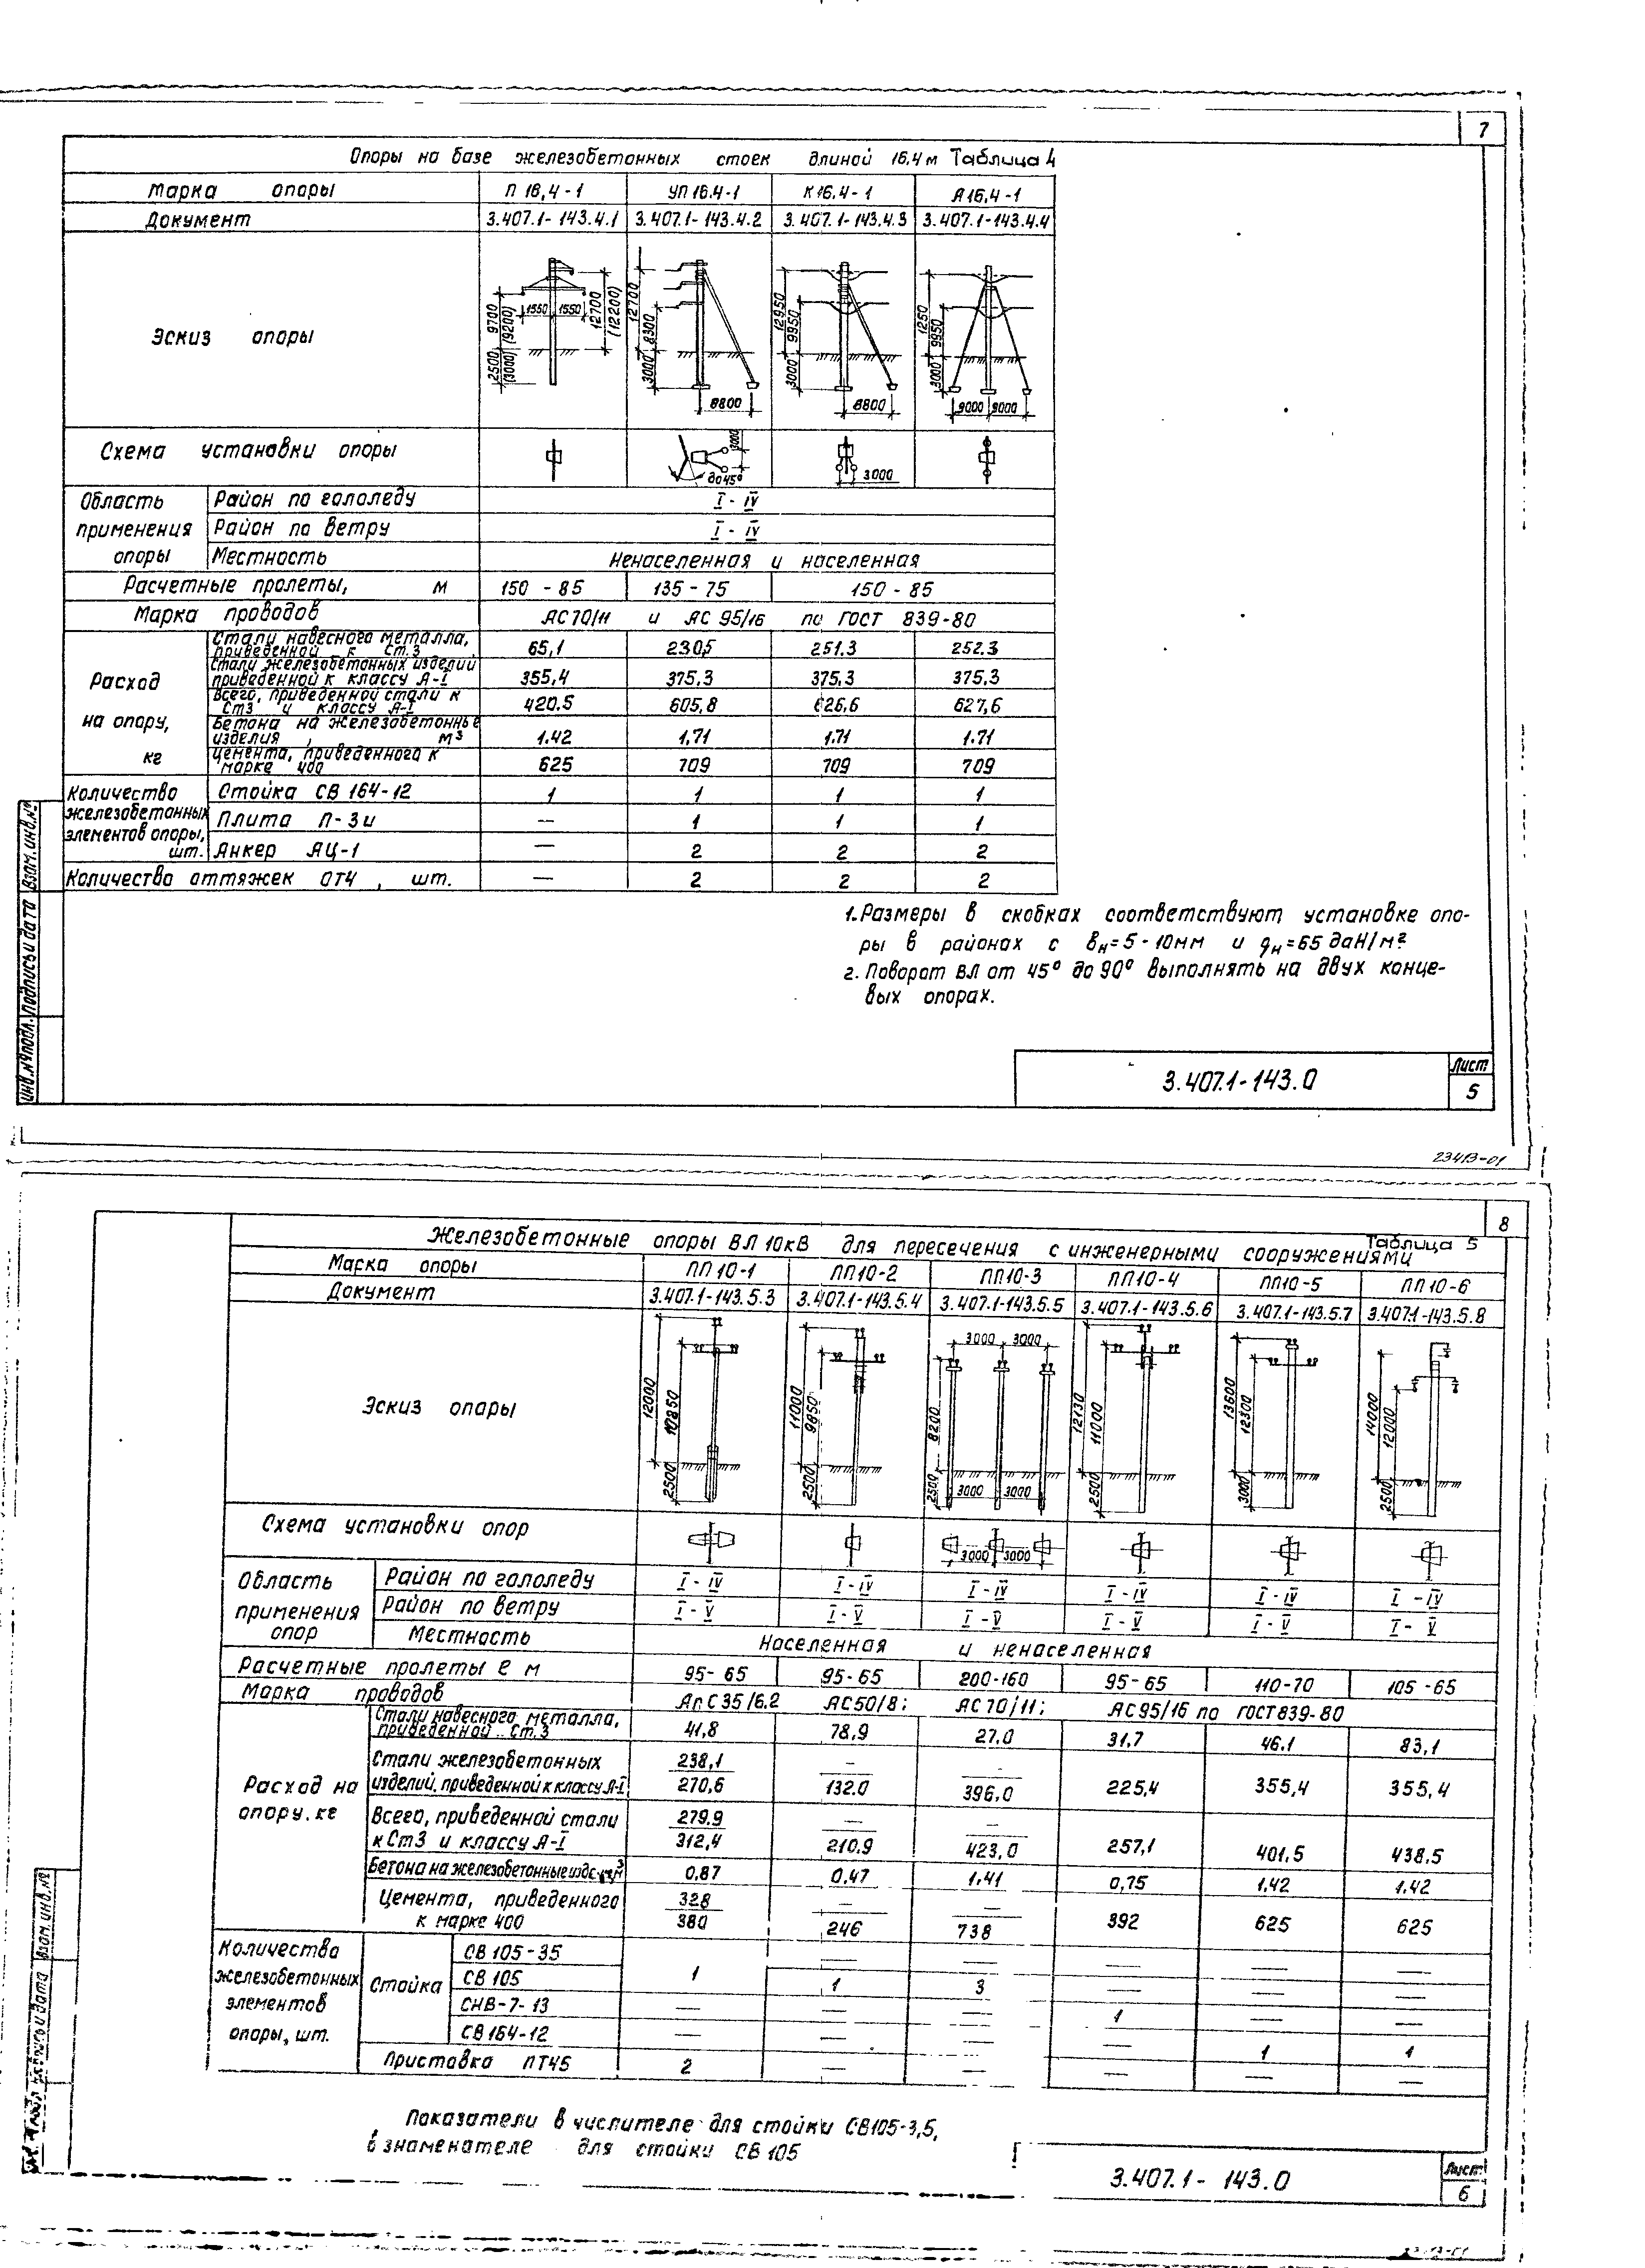 7
Опоры на базе железобетонных стоек длиной 16,4 м Таблица 4
Марка опоры П 16,4-1 УП 16.4-1 К 16.4-1 А 16,4-1
Документ 3.407.1-143.4.1 3.407.1-143.4.2 3.407.1-143.4.3 3.407.1-143.4.4
Эскиз опоры
9700 (9200) 2500 (3000) 1550 1550 12700 (12200)
12700 8300 3000 8800
12950 9950 3000 8800
1250 9950 3000 9000 9000
Схема установки опоры до 45° 3000 3000
Область применения опоры
Район по гололеду I - IV
Район по ветру I - IV
Местность Ненаселенная и населенная
Расчетные пролеты, м 150 - 85 135 - 75 150 - 85
Марка проводов АС 70/11 и АС 95/16 по ГОСТ 839-80
Расход на опору, кг
Стали навесного металла, приведенной к Ст.3 65,1 230,5 251.3 252.3
Стали железобетонных изделий приведенной к классу А-I 355,4 375,3 375,3 375,3
Всего, приведенной стали к Ст3 и классу А-I 420.5 605,8 626,6 627,6
Бетона на железобетонные изделия, м³ 1.42 1,71 1.71 1.71
Цемента, приведенного к марке 400 625 709 709 709
Количество железобетонных элементов опоры, шт.
Стойка СВ 164-12 1 1 1 1
Плита П-3и — 1 1 1
Анкер АЦ-1 — 2 2 2
Количество оттяжек ОТ4, шт. — 2 2 2
1. Размеры в скобках соответствуют установке опо-
ры в районах с bн=5-10мм и qн=65 даН/м².
2. Поворот ВЛ от 45° до 90° выполнять на двух конце-
вых опорах.
Инв.№подл. Подпись и дата Взам.инв.№
3.407.1-143.0
Лист
5
23413-01
8
Таблица 5
Железобетонные опоры ВЛ 10кВ для пересечения с инженерными сооружениями
Марка опоры ПП10-1 ПП10-2 ПП10-3 ПП10-4 ПП10-5 ПП10-6
Документ 3.407.1-143.5.3 3.407.1-143.5.4 3.407.1-143.5.5 3.407.1-143.5.6 3.407.1-143.5.7 3.407.1-143.5.8
Эскиз опоры
12000 10850 2500
11000 9850 2500
3000 3000 8200 2500 3000 3000
12130 11000 2500
13600 12300 3000
14000 12000 2500
Схема установки опор 3000 3000
Область применения опор
Район по гололеду I - IV I - IV I - IV I - IV I - IV I - IV
Район по ветру I - V I - V I - V I - V I - V I - V
Местность Населенная и ненаселенная
Расчетные пролеты ℓ м 95-65 95-65 200-160 95-65 110-70 105-65
Марка проводов АпС 35/6.2 АС50/8; АС 70/11; АС95/16 по ГОСТ 839-80
Расход на опору, кг
Стали навесного металла, приведенной Ст.3 41,8 78,9 27,0 31,7 46.1 83,1
Стали железобетонных 238,1 — —
изделий, приведенной к классу А-I 270,6 132.0 396,0 225,4 355,4 355,4
Всего, приведенной стали 279.9 — —
к Ст3 и классу А-I 312,4 210,9 423,0 257,1 401,5 438,5
Бетона на железобетонные изде м³ 0,87 0,47 1,41 0,75 1,42 1.42
Цемента, приведенного 328 — —
к марке 400 380 246 738 392 625 625
Количества железобетонных элементов опоры, шт.
Стойка
СВ 105-35 — — — — —
СВ 105 1 1 3 — — —
СНВ-7-13 — — — 1 — —
СВ 164-12 — — — — 1 1
Приставка ПТ45 2 — — — — —
Показатели в числителе для стойки СВ105-3,5,
в знаменателе для стойки СВ 105
Взам.инв.№
3.407.1-143.0
Лист
6